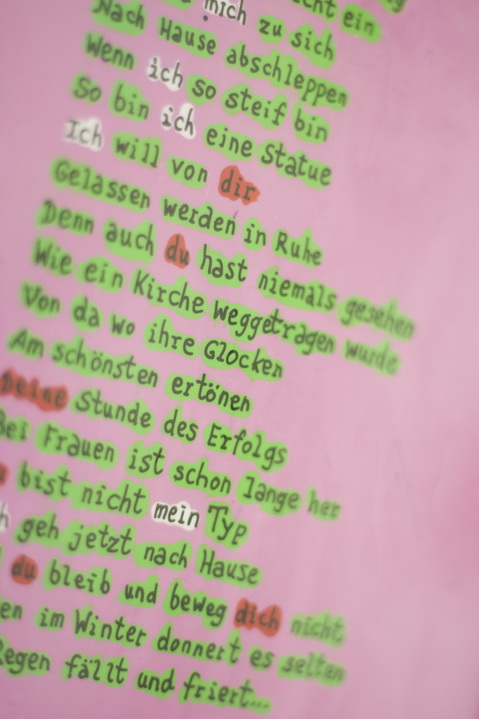 mich zu sich
Nach Hause abschleppen
Wenn ich so steif bin
So bin ich eine Statue
Ich will von dir
Gelassen werden in Ruhe
Denn auch du hast niemals gesehen
Wie ein Kirche weggetragen wurde
Von da wo ihre Glocken
Am schönsten ertönen
Deine Stunde des Erfolgs
Bei Frauen ist schon lange her
bist nicht mein Typ
geh jetzt nach Hause
du bleib und beweg dich nicht
im Winter donnert es selten
Regen fällt und friert...